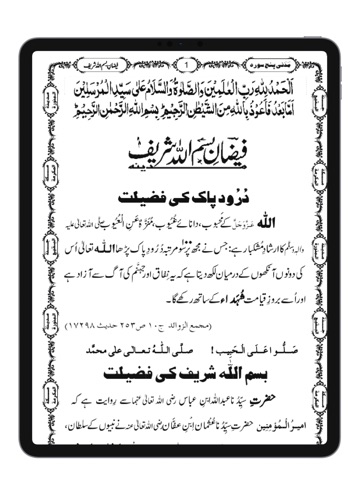 فیضانِ بسم اللہ شریف
1
مدنی پنج سورہ
اَلْحَمْدُ لِلّٰهِ رَبِّ الْعٰلَمِیْنَ وَالصَّلٰوةُ وَالسَّلَامُ عَلٰی سَیِّدِ الْمُرْسَلِیْنَ
اَمَّا بَعْدُ فَاَعُوْذُ بِاللّٰهِ مِنَ الشَّیْطٰنِ الرَّجِیْمِ ؕ بِسْمِ اللّٰهِ الرَّحْمٰنِ الرَّحِیْمِ ؕ
فیضانِ بسم اللہ شریف
دُرُودِ پاک کی فضیلت
اللّٰہ عَزَّوَجَلَّ کے محبوب، دانائے غُیُوب، مُنَزَّہٌ عَنِ الْعُیُوب صلی اللہ تعالیٰ علیہ
والہ وسلم کا ارشادِ مشکبار ہے: جس نے مجھ پر سو مرتبہ دُرُودِ پاک پڑھا اللّٰہ تعالیٰ اُس
کی دونوں آنکھوں کے درمیان لکھ دیتا ہے کہ یہ نفاق اور جہنَّم کی آگ سے آزاد ہے
اور اُسے بروزِ قیامت شُہَداء کے ساتھ رکھے گا۔
(مجمع الزوائد ج ۱۰ ص ۲۵۳ حدیث ۱۷۲۹۸)
صَلُّوا عَلَی الْحَبِیب ! صلَّی اللّٰہُ تعالٰی علٰی محمَّد
بسم اللّٰہ شریف کی فضیلت
حضرتِ سیِّدُنا عبداللہ ابنِ عباس رضی اللہ تعالیٰ عنہما سے روایت ہے کہ
امیرُ الْمُؤمِنین حضرتِ سیِّدُنا عُثمان اِبنِ عفّان رضی اللہ تعالیٰ عنہ نے نبیوں کے سلطان،